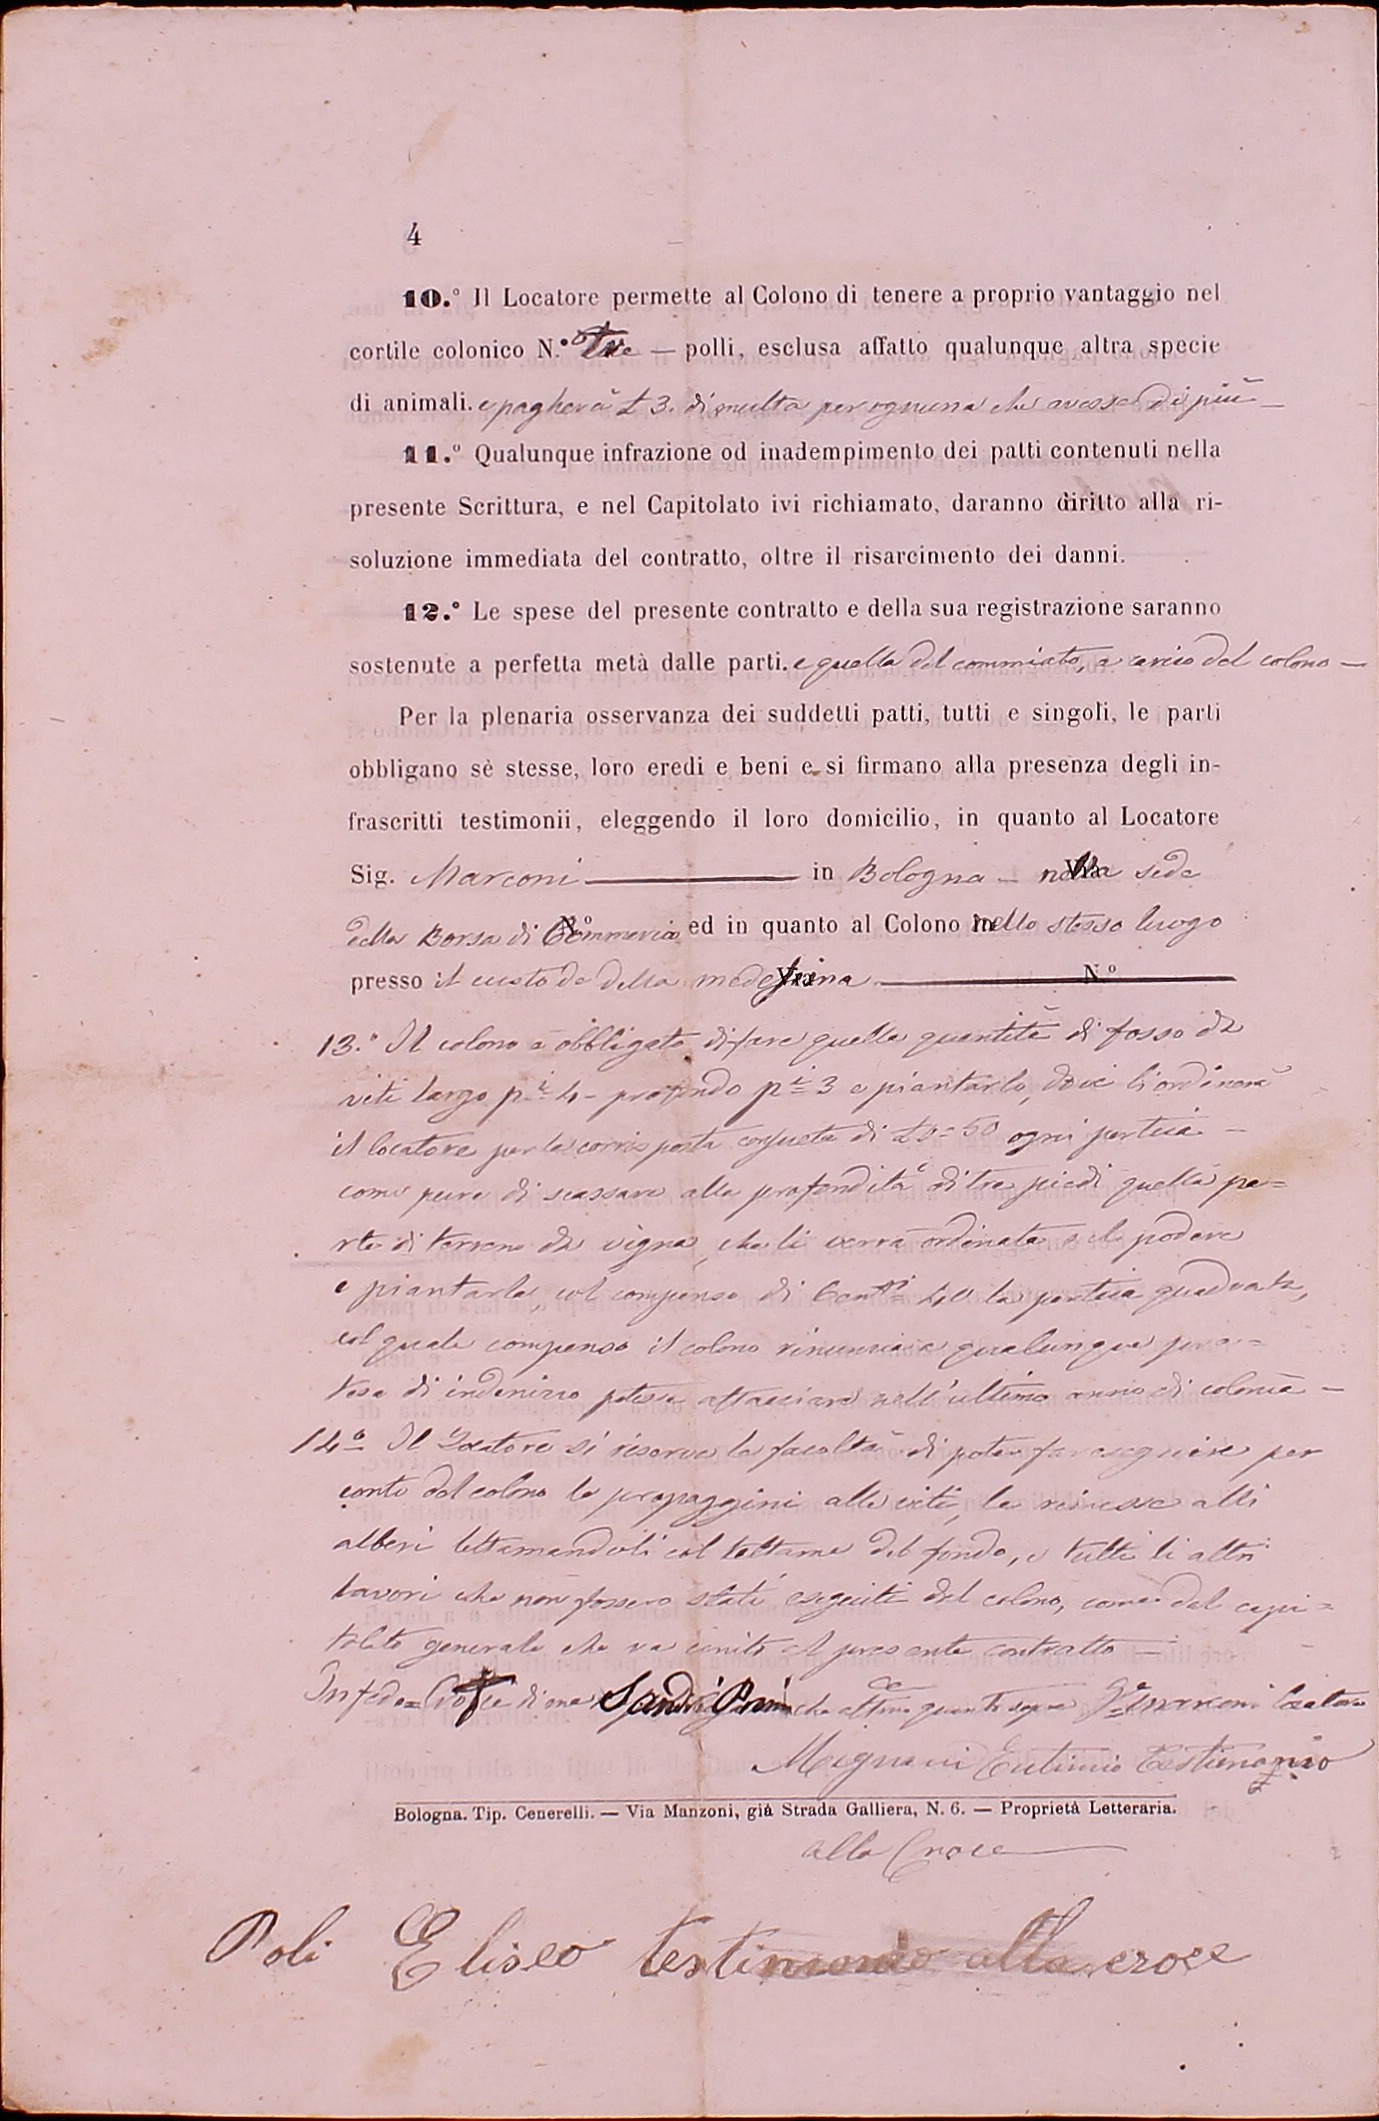 4
10.° Il Locatore permette al Colono di tenere a proprio vantaggio nel
cortile colonico N.° tre — polli, esclusa affatto qualunque altra specie
di animali. e pagherà £ 3. di multa per ognuna che avesse di più —
11.° Qualunque infrazione od inadempimento dei patti contenuti nella
presente Scrittura, e nel Capitolato ivi richiamato, daranno diritto alla ri-
soluzione immediata del contratto, oltre il risarcimento dei danni.
12.° Le spese del presente contratto e della sua registrazione saranno
sostenute a perfetta metà dalle parti. e quella del commiato, a carico del colono —
Per la plenaria osservanza dei suddetti patti, tutti e singoli, le parti
obbligano sè stesse, loro eredi e beni e si firmano alla presenza degli in-
frascritti testimonii, eleggendo il loro domicilio, in quanto al Locatore
Sig. Marconi — in Bologna — nella sede
della Borsa di Commercio ed in quanto al Colono nello stesso luogo
presso il custode della medesima — N.°
13.° Il colono è obbligato di fare quella quantità di fosso da
viti largo p.i 4 - profondo p.i 3 e piantarlo, dove li ordinerà
il locatore per la corrisposta consueta di 50 ogni pertica —
come pure di scassare alla profondità di tre piedi quella pa=
rte di terreno da vigna, che li verrà ordinata nel podere
e piantarla, col compenso di Cent.i 40 la pertica quadrata,
col quale compenso il colono rinuncia a qualunque pre=
tesa di indenizzo potesse affacciare nell'ultimo anno di colonia —
14° Il Locatore si riserva la facoltà di poter far eseguire per
conto del colono le propaggini alle viti, le rimesse alli
alberi lettamandoli col lettame del fondo, e tutti li altri
lavori che non fossero stati eseguiti dal colono, come dal capi=
tolato generale che va unito al presente contratto —
In fede = Croce di me Sandri che affermo quanto sopra G Marconi Locatore
Mignani Eutimio Testimonio
Bologna. Tip. Cenerelli. — Via Manzoni, già Strada Galliera, N. 6. — Proprietà Letteraria.
alla Croce
Poli Eliseo testimonio alla croce